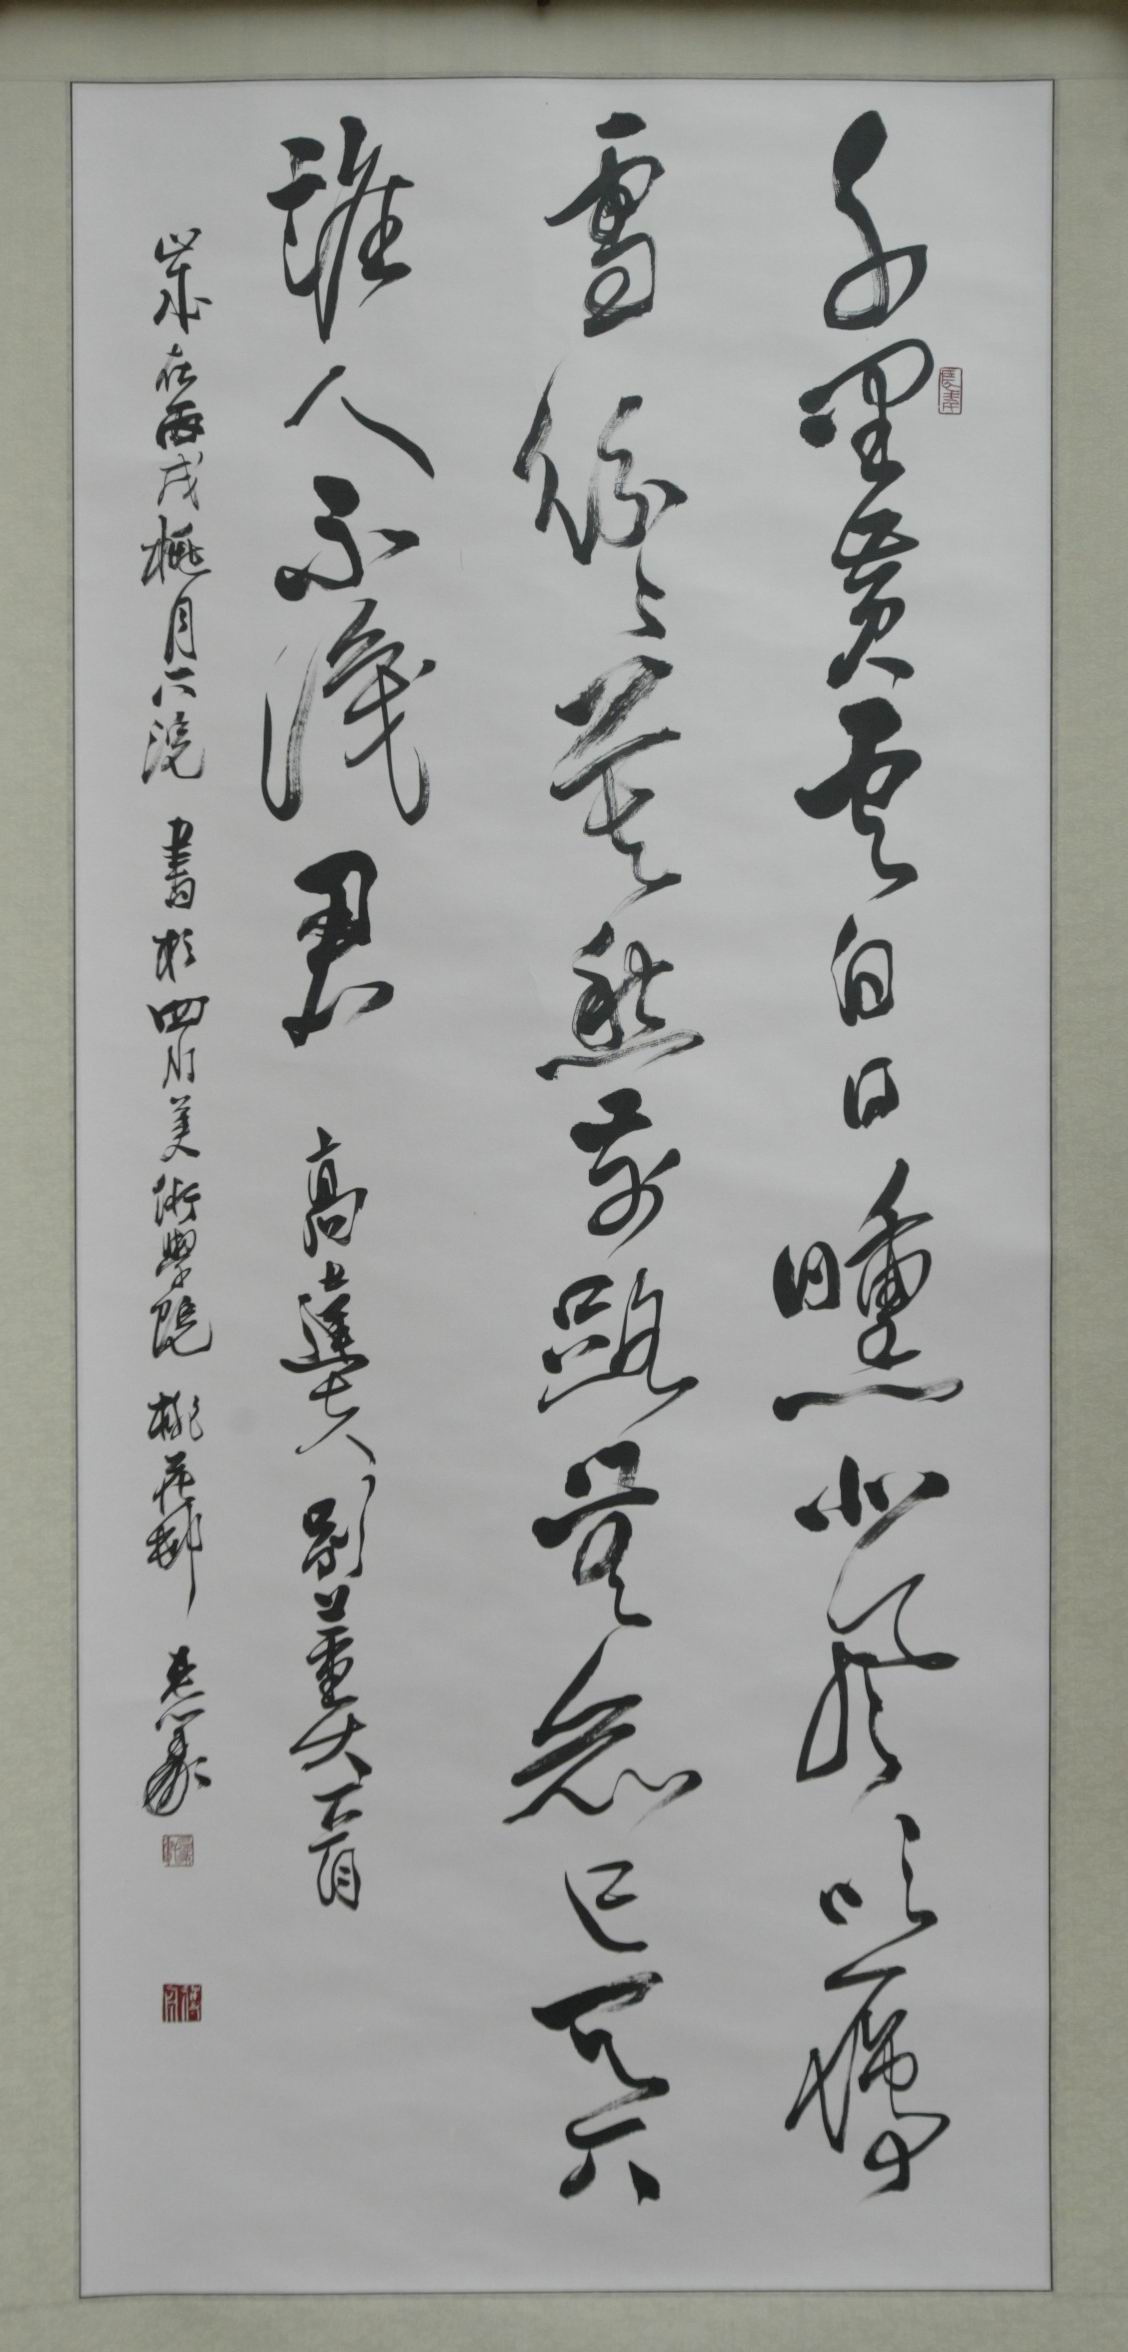 千里黄云白日曛北风吹雁
雪纷〻莫愁前路无知己天下
谁人不识君 高达夫别董大一首
岁在丙戌桃月 书于四川美术学院 桃花村